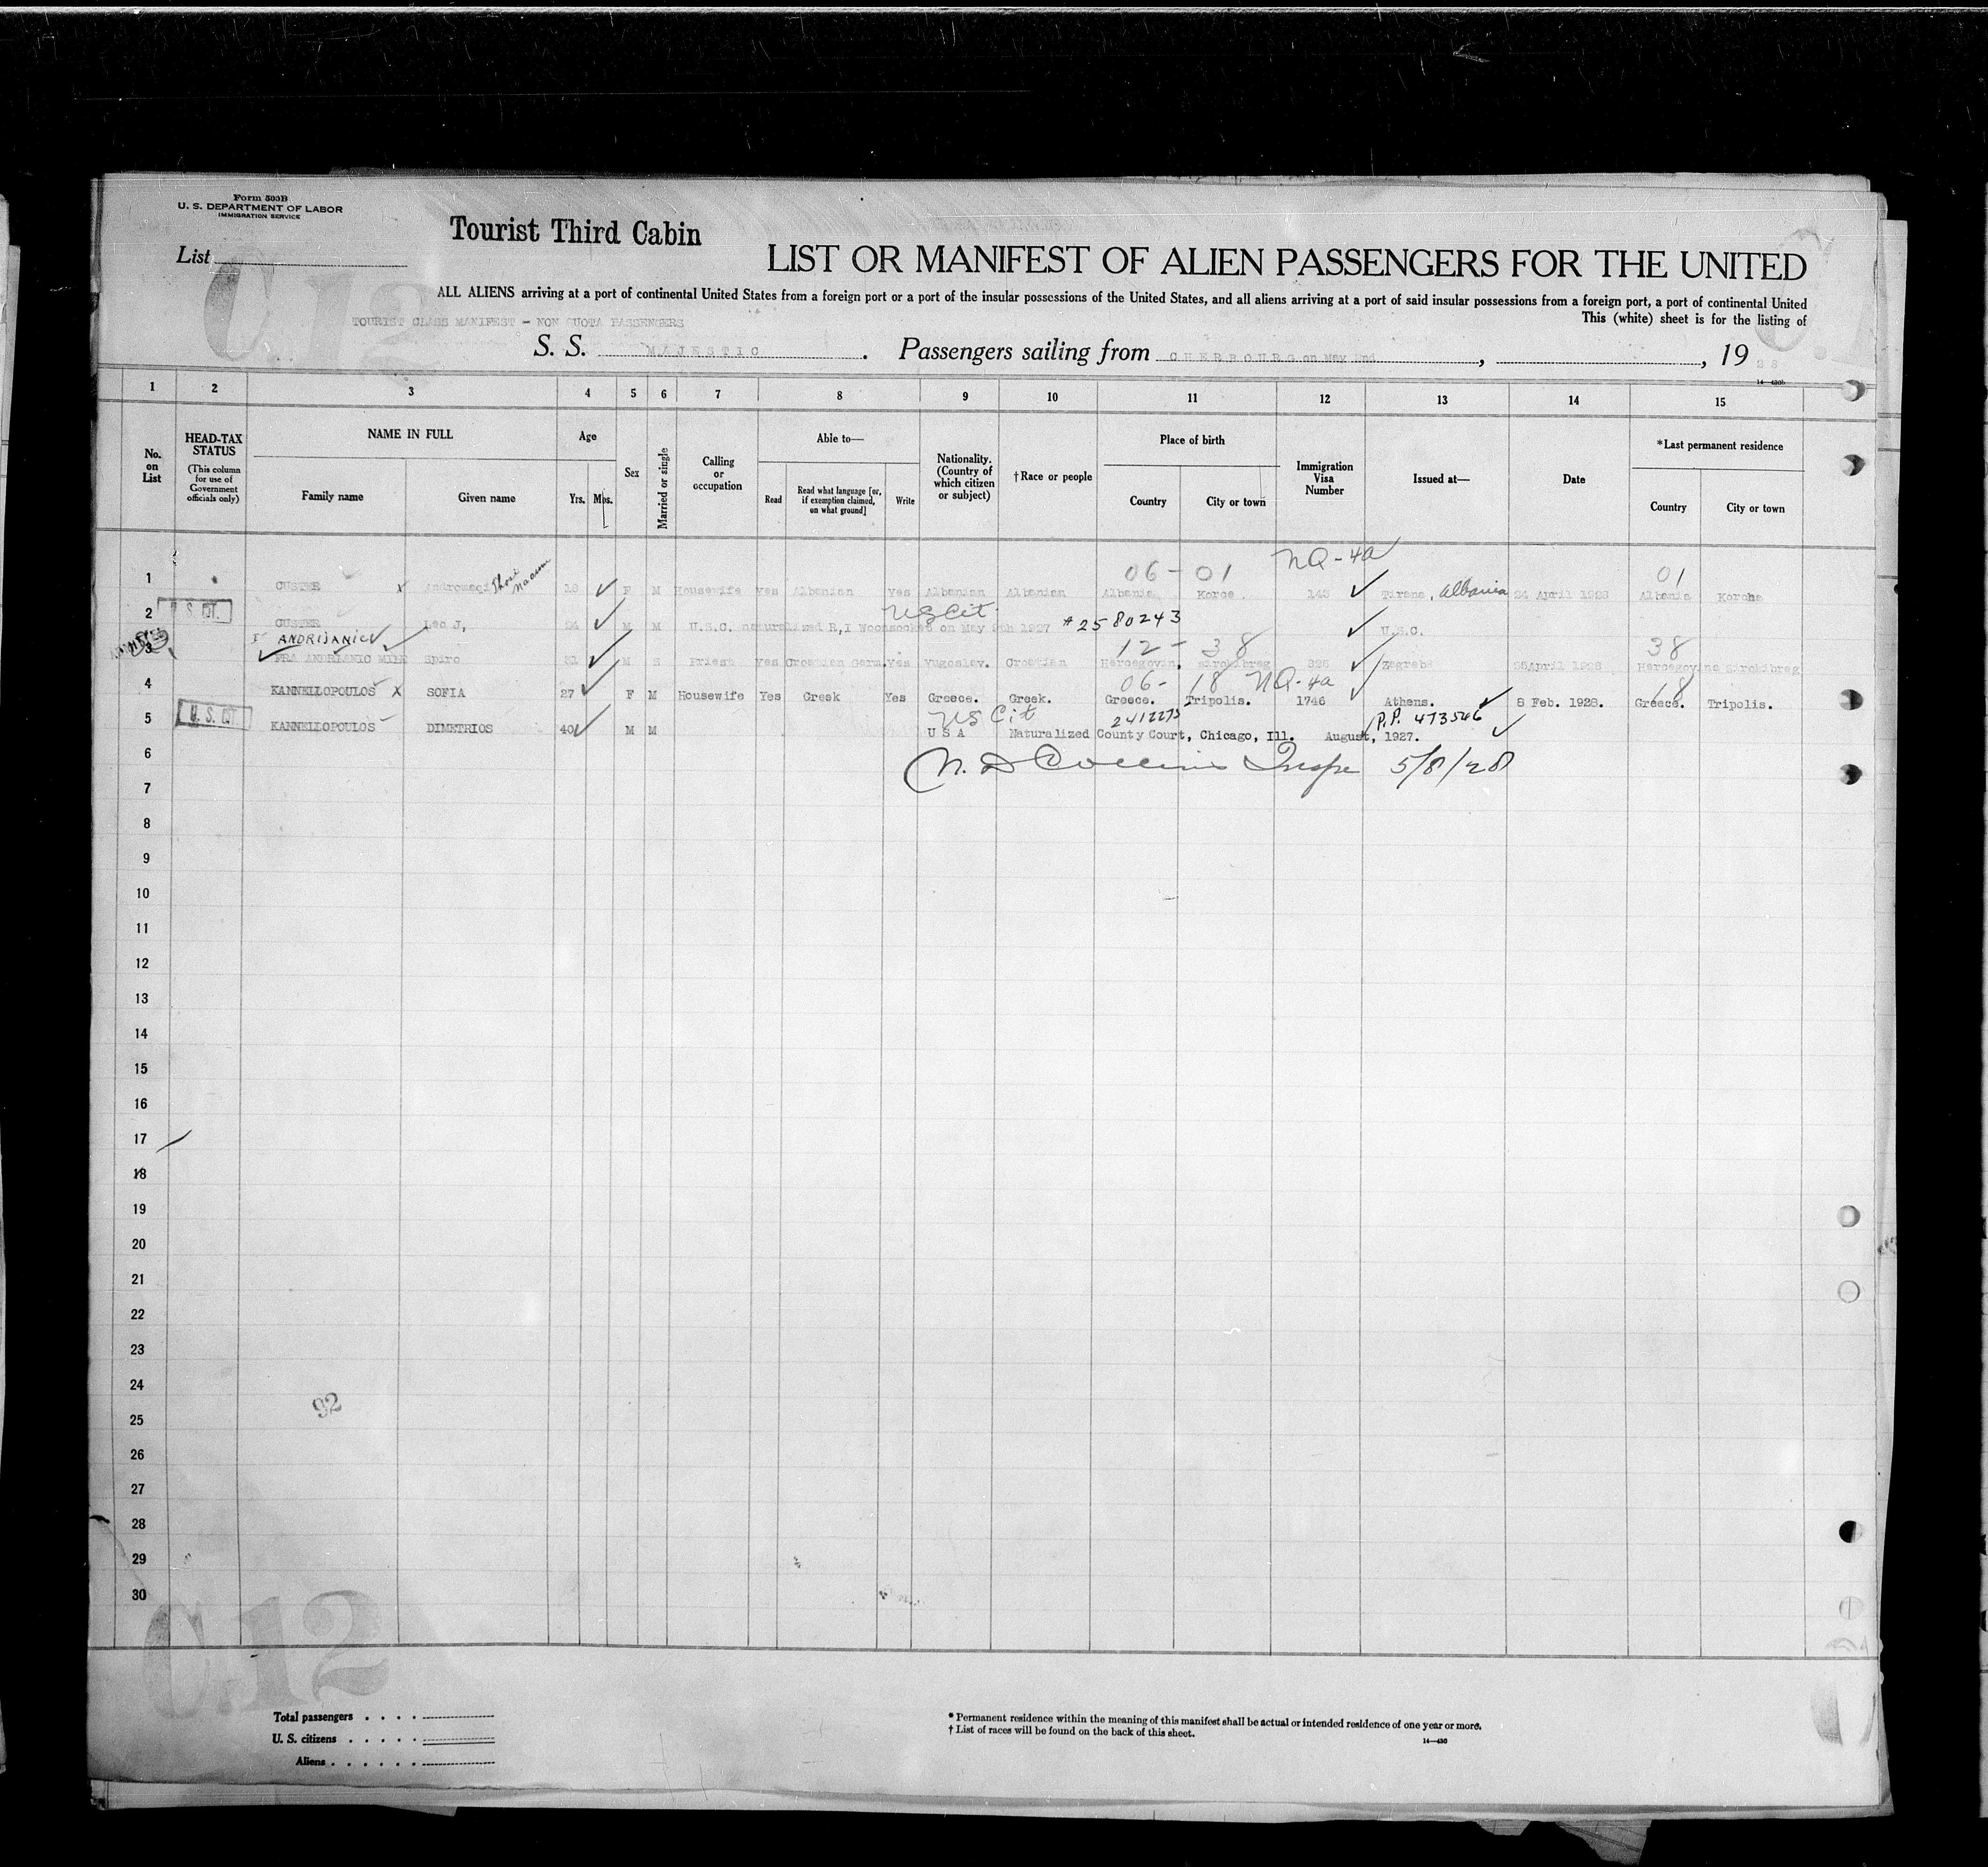 Form 503B
U. S. DEPARTMENT OF LABOR
IMMIGRATION SERVICE
Tourist Third Cabin
List
LIST OR MANIFEST OF ALIEN PASSENGERS FOR THE UNITED
ALL ALIENS arriving at a port of continental United States from a foreign port or a port of the insular possessions of the United States, and all aliens arriving at a port of said insular possessions from a foreign port, a port of continental United
This (white) sheet is for the listing of
TOURIST CLASS MANIFEST - NON QUOTA PASSENGERS
S. S. MAJESTIC. Passengers sailing from CHERBOURG on May 2nd, , 1928
14—430b
1 2 3 4 5 6 7 8 9 10 11 12 13 14 15
No. on List
HEAD-TAX STATUS
(This column for use of Government officials only)
NAME IN FULL
Family name Given name
Age
Yrs. Mos.
Sex
Married or single
Calling or occupation
Able to—
Read Read what language [or, if exemption claimed, on what ground] Write
Nationality. (Country of which citizen or subject)
†Race or people
Place of birth
Country City or town
Immigration Visa Number
Issued at—
Date
*Last permanent residence
Country City or town
06 - 01 NQ-4a 01
1 CUSTER X Andromaqi Naoum 18 F M Housewife Yes Albanian Yes Albanian Albanian Albania Korce. 143 Tirana, Albania 24 April 1928 Albania Korcha
U. S. CIT. US Cit.
2 CUSTER Leo J, 24 M M U.S.C. naturalized R,I Woonsocket on May 9th 1927 #2580243 U.S.C.
ANDRIJANIC 12 - 38 38
3 FRA ANDRIANIC MILE Spiro 31 M S Priest Yes Croatian Germ. Yes Yugoslav. Croatian Hercegovin. Sirokibreg 328 Zagreb 25 April 1928 Hercegovina Sirokibreg
06- 18 NQ-4a 18
4 KANNELLOPOULOS X SOFIA 27 F M Housewife Yes Greek Yes Greece. Greek. Greece. Tripolis. 1746 Athens. 8 Feb. 1928. Greece. Tripolis.
U. S. CIT. US Cit 2412275 P.P. 473546
5 KANNELLOPOULOS DIMETRIOS 40 M M U S A Naturalized County Court, Chicago, Ill. August, 1927.
6 N. D Collins Inspr 5/8/28
7
8
9
10
11
12
13
14
15
16
17
18
19
20
21
22
23
24
92
25
26
27
28
29
30
C.12
Total passengers
U. S. citizens
Aliens
* Permanent residence within the meaning of this manifest shall be actual or intended residence of one year or more.
† List of races will be found on the back of this sheet.
14—430